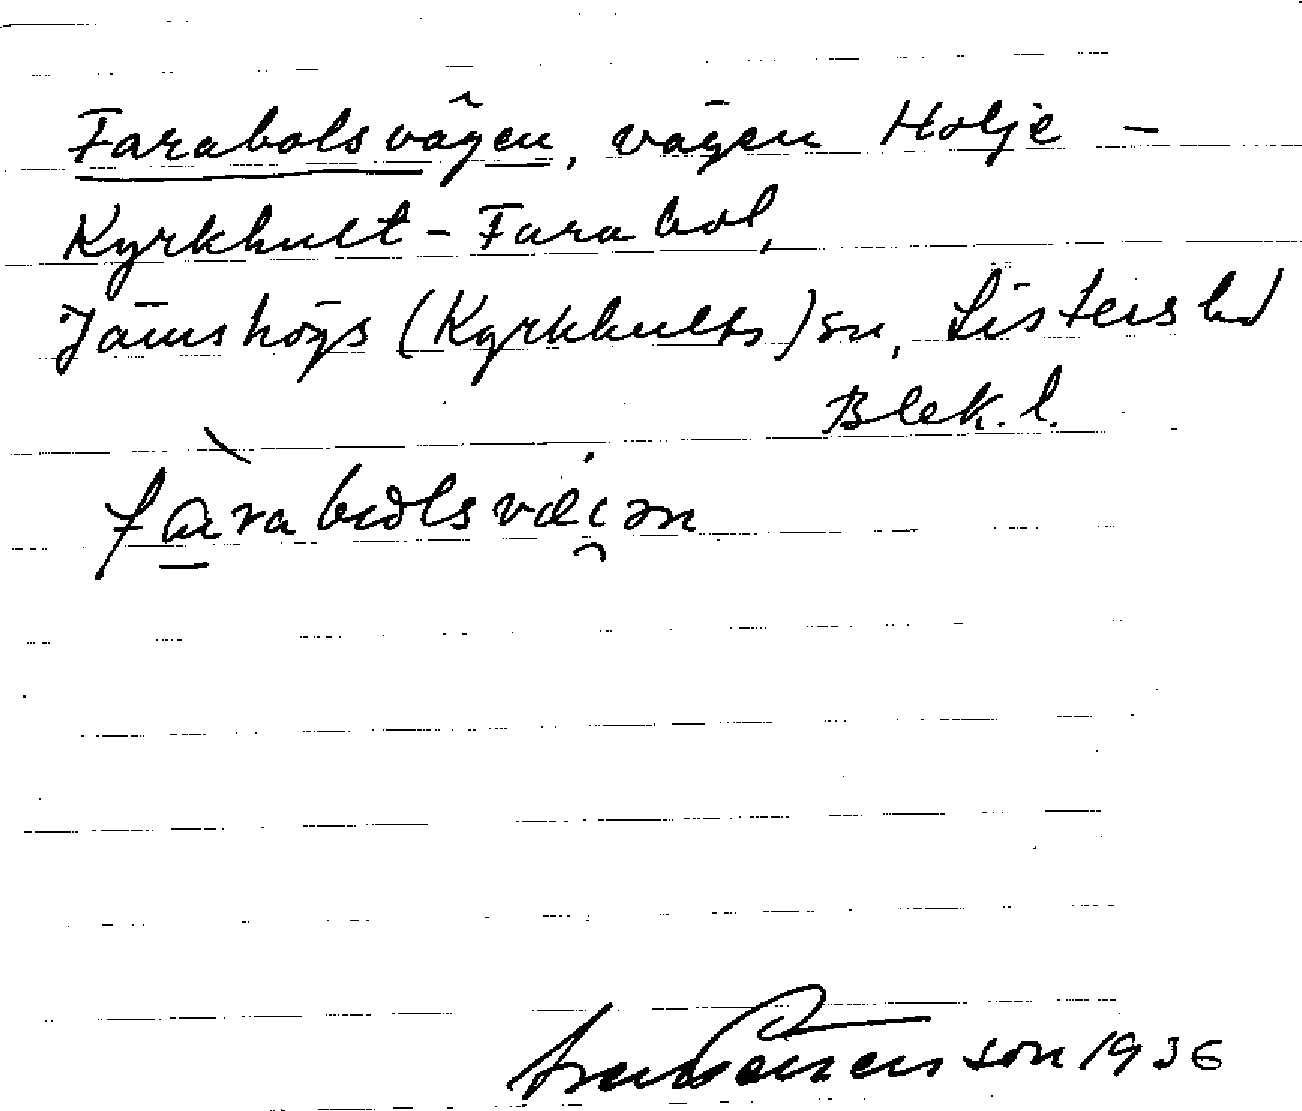 Farabolsvägen, vägen Holje –
Kyrkhult - Farabol,
Jämshögs (Kyrkhults) sn, Listers hd
Blek. l.
1936